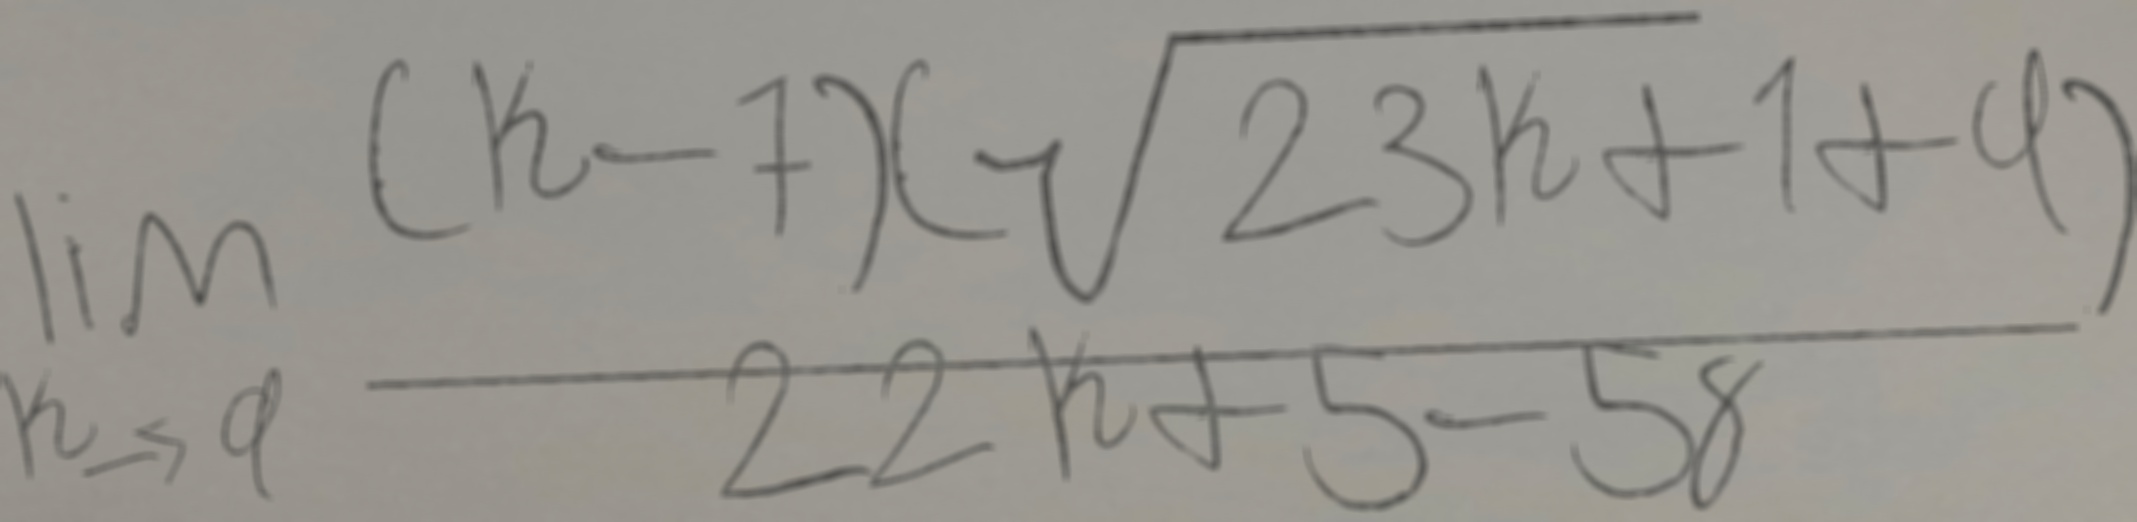 \lim_{k \to 9} \frac{(k-7)(\sqrt{23k+1}+4)}{22k+5-58}